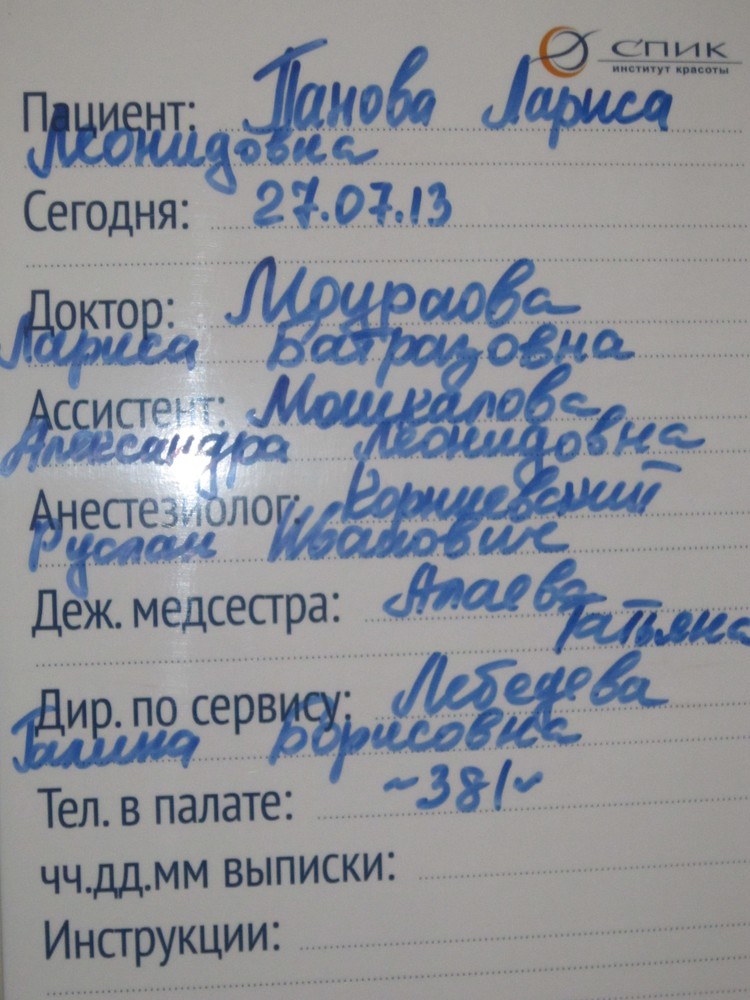 СПИК
институт красоты
Пациент: Панова Лариса
Леонидовна
Сегодня: 27.07.13
Доктор: Моураова
Лариса Батразовна
Ассистент: Мошкалова
Александра Леонидовна
Анестезиолог: Корниевский
Руслан Иванович
Деж. медсестра: Алаева
Татьяна
Дир. по сервису: Лебедева
Галина Борисовна
Тел. в палате: ~381~
чч.дд.мм выписки:
Инструкции: